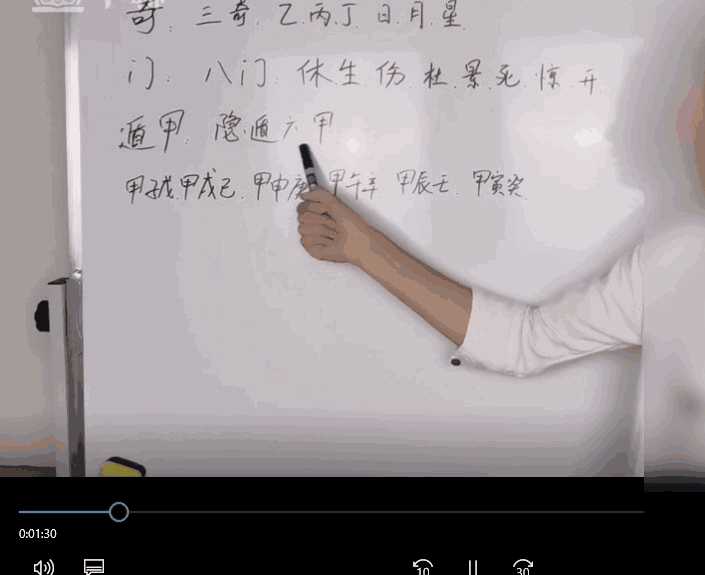 奇：三奇、乙.丙.丁 日.月.星
门：八门：休生伤.杜.景.死.惊.开
遁甲：隐遁六甲
甲子戊.甲戌己.甲申庚.甲午辛 甲辰壬.甲寅癸
0:01:30
10 30